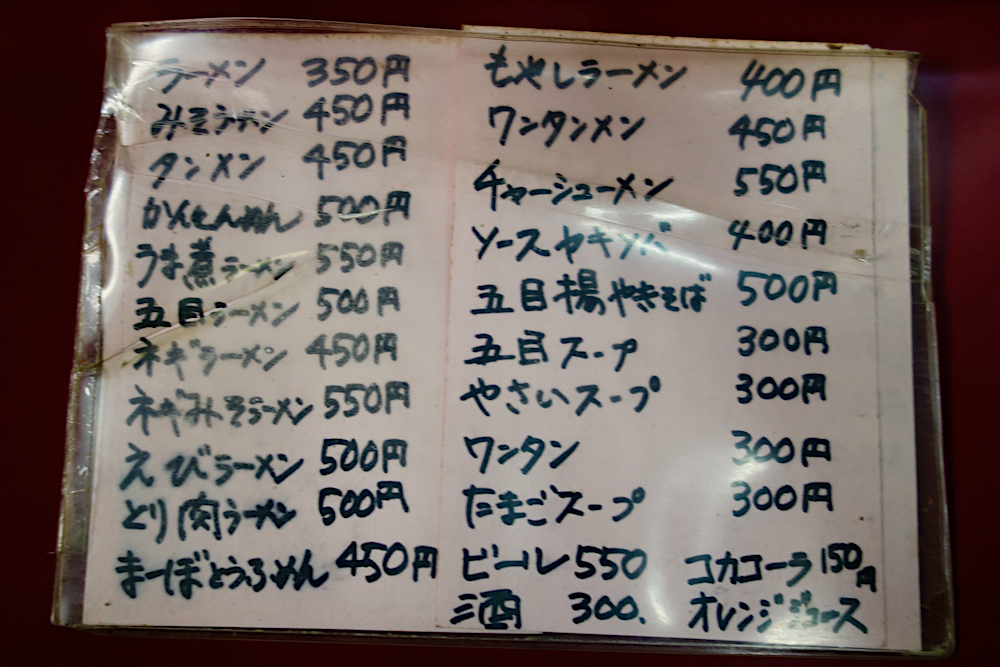 ラーメン 350円
みそラーメン 450円
タンメン 450円
かんたんめん 500円
うま煮ラーメン 550円
五目ラーメン 500円
ネギラーメン 450円
ネギみそラーメン 550円
えびラーメン 500円
とり肉ラーメン 500円
まーぼとうふめん 450円
もやしラーメン 400円
ワンタンメン 450円
チャーシューメン 550円
ソースヤキソバ 400円
五目揚やきそば 500円
五目スープ 300円
やさいスープ 300円
ワンタン 300円
たまごスープ 300円
ビール 550 コカコーラ 150円
酒 300. オレンジジュース